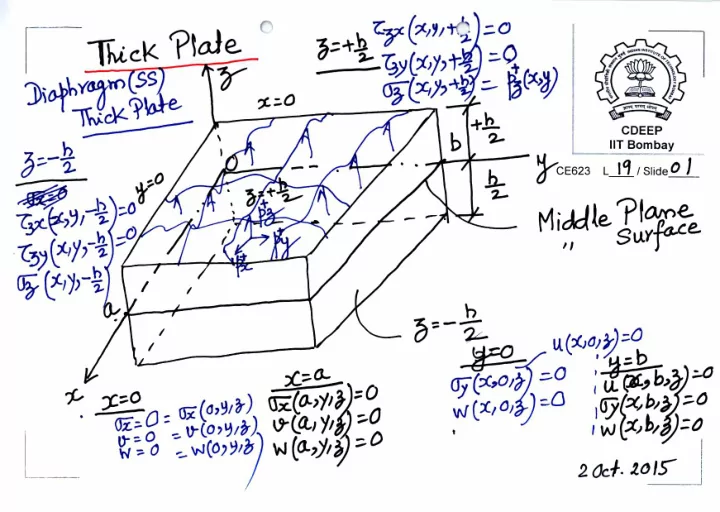 Thick Plate
Diaphragm (SS)
Thick Plate
z=+h/2
τzx(x,y,+h/2)=0
τzy(x,y,+h/2)=0
σz(x,y,+h/2)=p⁺z(x,y)
CDEEP
IIT Bombay
CE623 L 19 / Slide 01
z
x=0
b
+h/2
h/2
y
z=-h/2
τzx(x,y,-h/2)=0
τzy(x,y,-h/2)=0
σz(x,y,-h/2)
y=0
O
z=+h/2
p⁺z
p⁺y
p⁺x
Middle Plane
" Surface
a
z=-h/2
x
x=0
σx=0=σx(0,y,z)
v=0=v(0,y,z)
w=0=w(0,y,z)
x=a
σx(a,y,z)=0
v(a,y,z)=0
w(a,y,z)=0
y=0
u(x,0,z)=0
σy(x,0,z)=0
w(x,0,z)=0
y=b
u(x,b,z)=0
σy(x,b,z)=0
w(x,b,z)=0
2 Oct. 2015